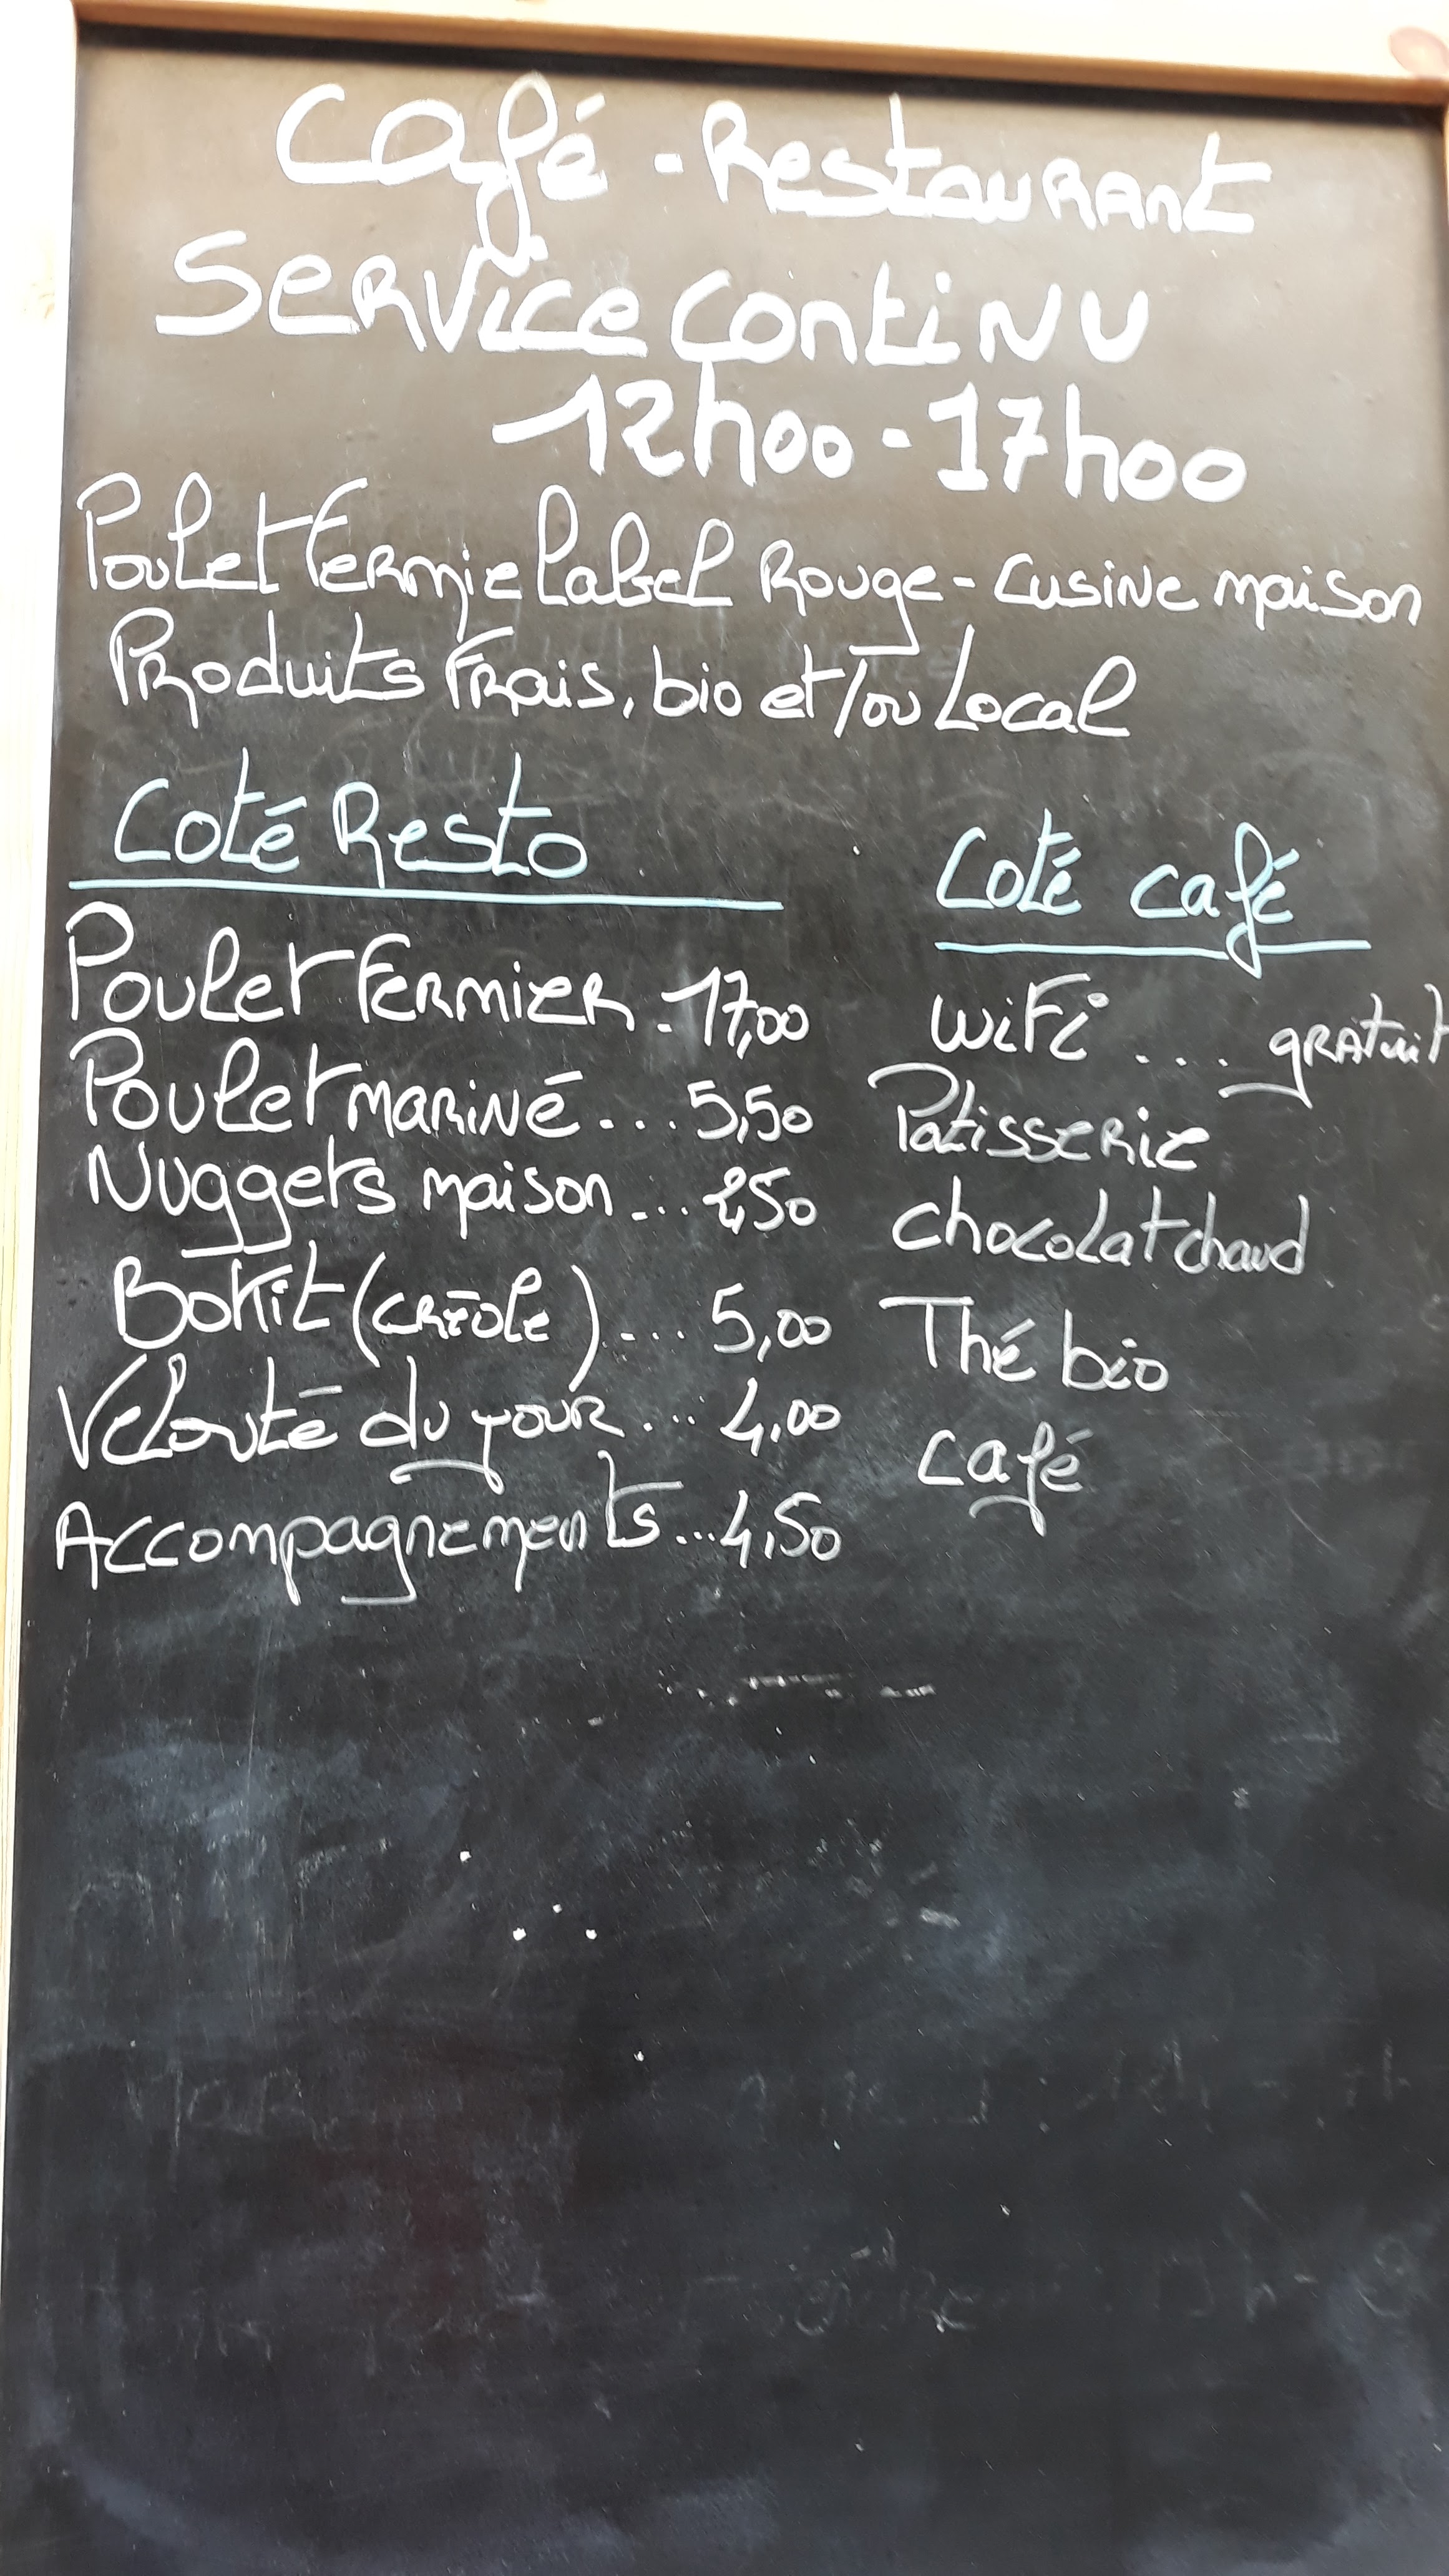 Café - Restaurant
Service continu
12h00 - 17h00
Poulet Fermie Label Rouge - Cusine maison
Produits Frais, bio et/ou Local
Coté Resto
Poulet Fermier. 17,00
Poulet mariné... 5,50
Nuggets maison... 2,50
Bokit (créole)... 5,00
Velouté du jour... 4,00
Accompagnements... 4,50
Coté café
WiFi .... gratuit
Patisserie
chocolat chaud
Thé bio
café